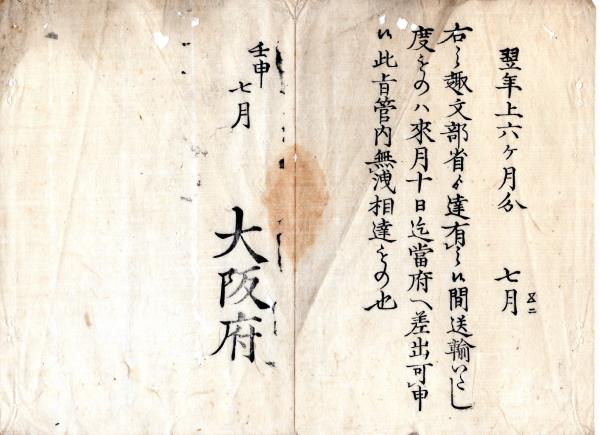 翌年上六ケ月分 七月
右之趣文部省ゟ達有之候間送輸いたし
度ものハ來月十日迄當府ヘ差出可申
候此旨管内無洩相達もの也
壬申
七月
大阪府